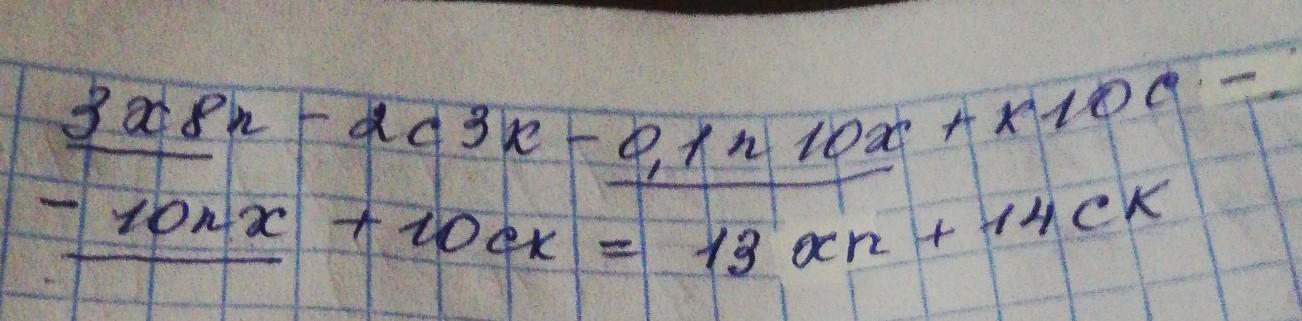 3x8n - 2c3к - 0,1n 10x + к10c -
- 10nx + 10cк = 13 xn + 14cк